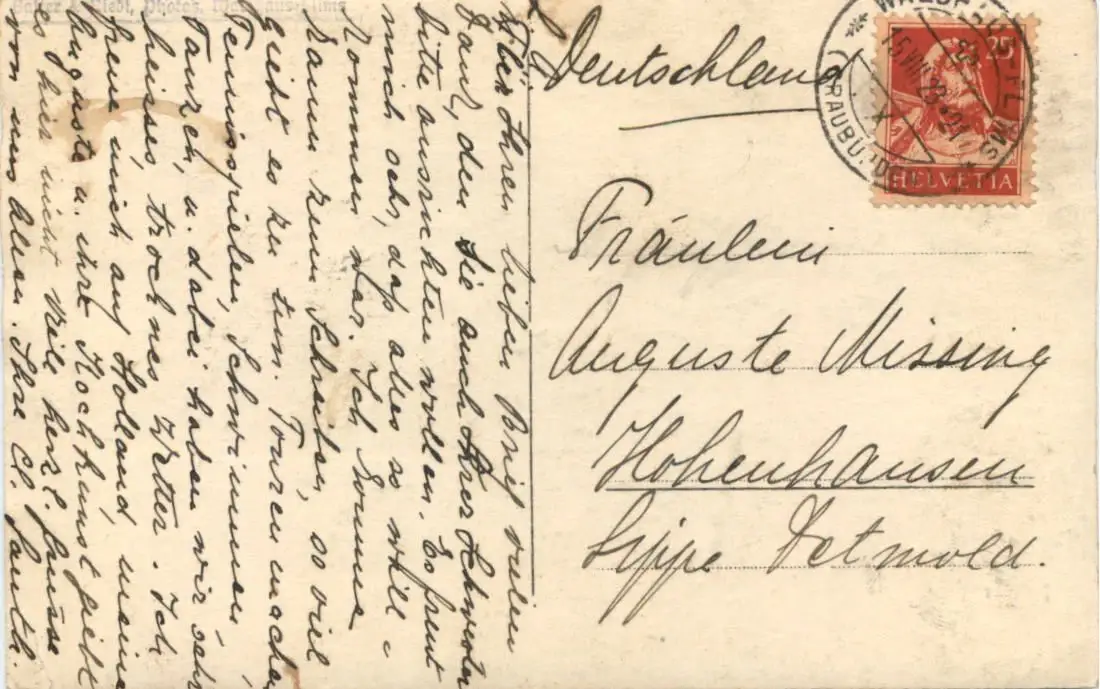 L. A.
Für Ihren lieben Brief vielen
Dank, den Sie auch Ihrer Schwester
bitte ausrichten wollen. Es freut
mich sehr, daß alles so
kommen war. Ich komme
kaum zum Schreiben, so viel
giebt es zu tun. Touren machen
Tennisspielen, Schwimmen,
Tanzen, u. dabei haben wir sehr
heisses, trocknes Wetter. Ich
freue mich auf Holland, meine
Auguste u. ihre Kochkünst giebt
es hier nicht. Viele herzl. Grüsse
von uns Allen. Ihre Cl.
Deutschland
Fräulein
Auguste Missing
Hohenhausen
Lippe Detmold.
25
HELVETIA
WALDH FLIMS
(GRAUBÜNDEN)